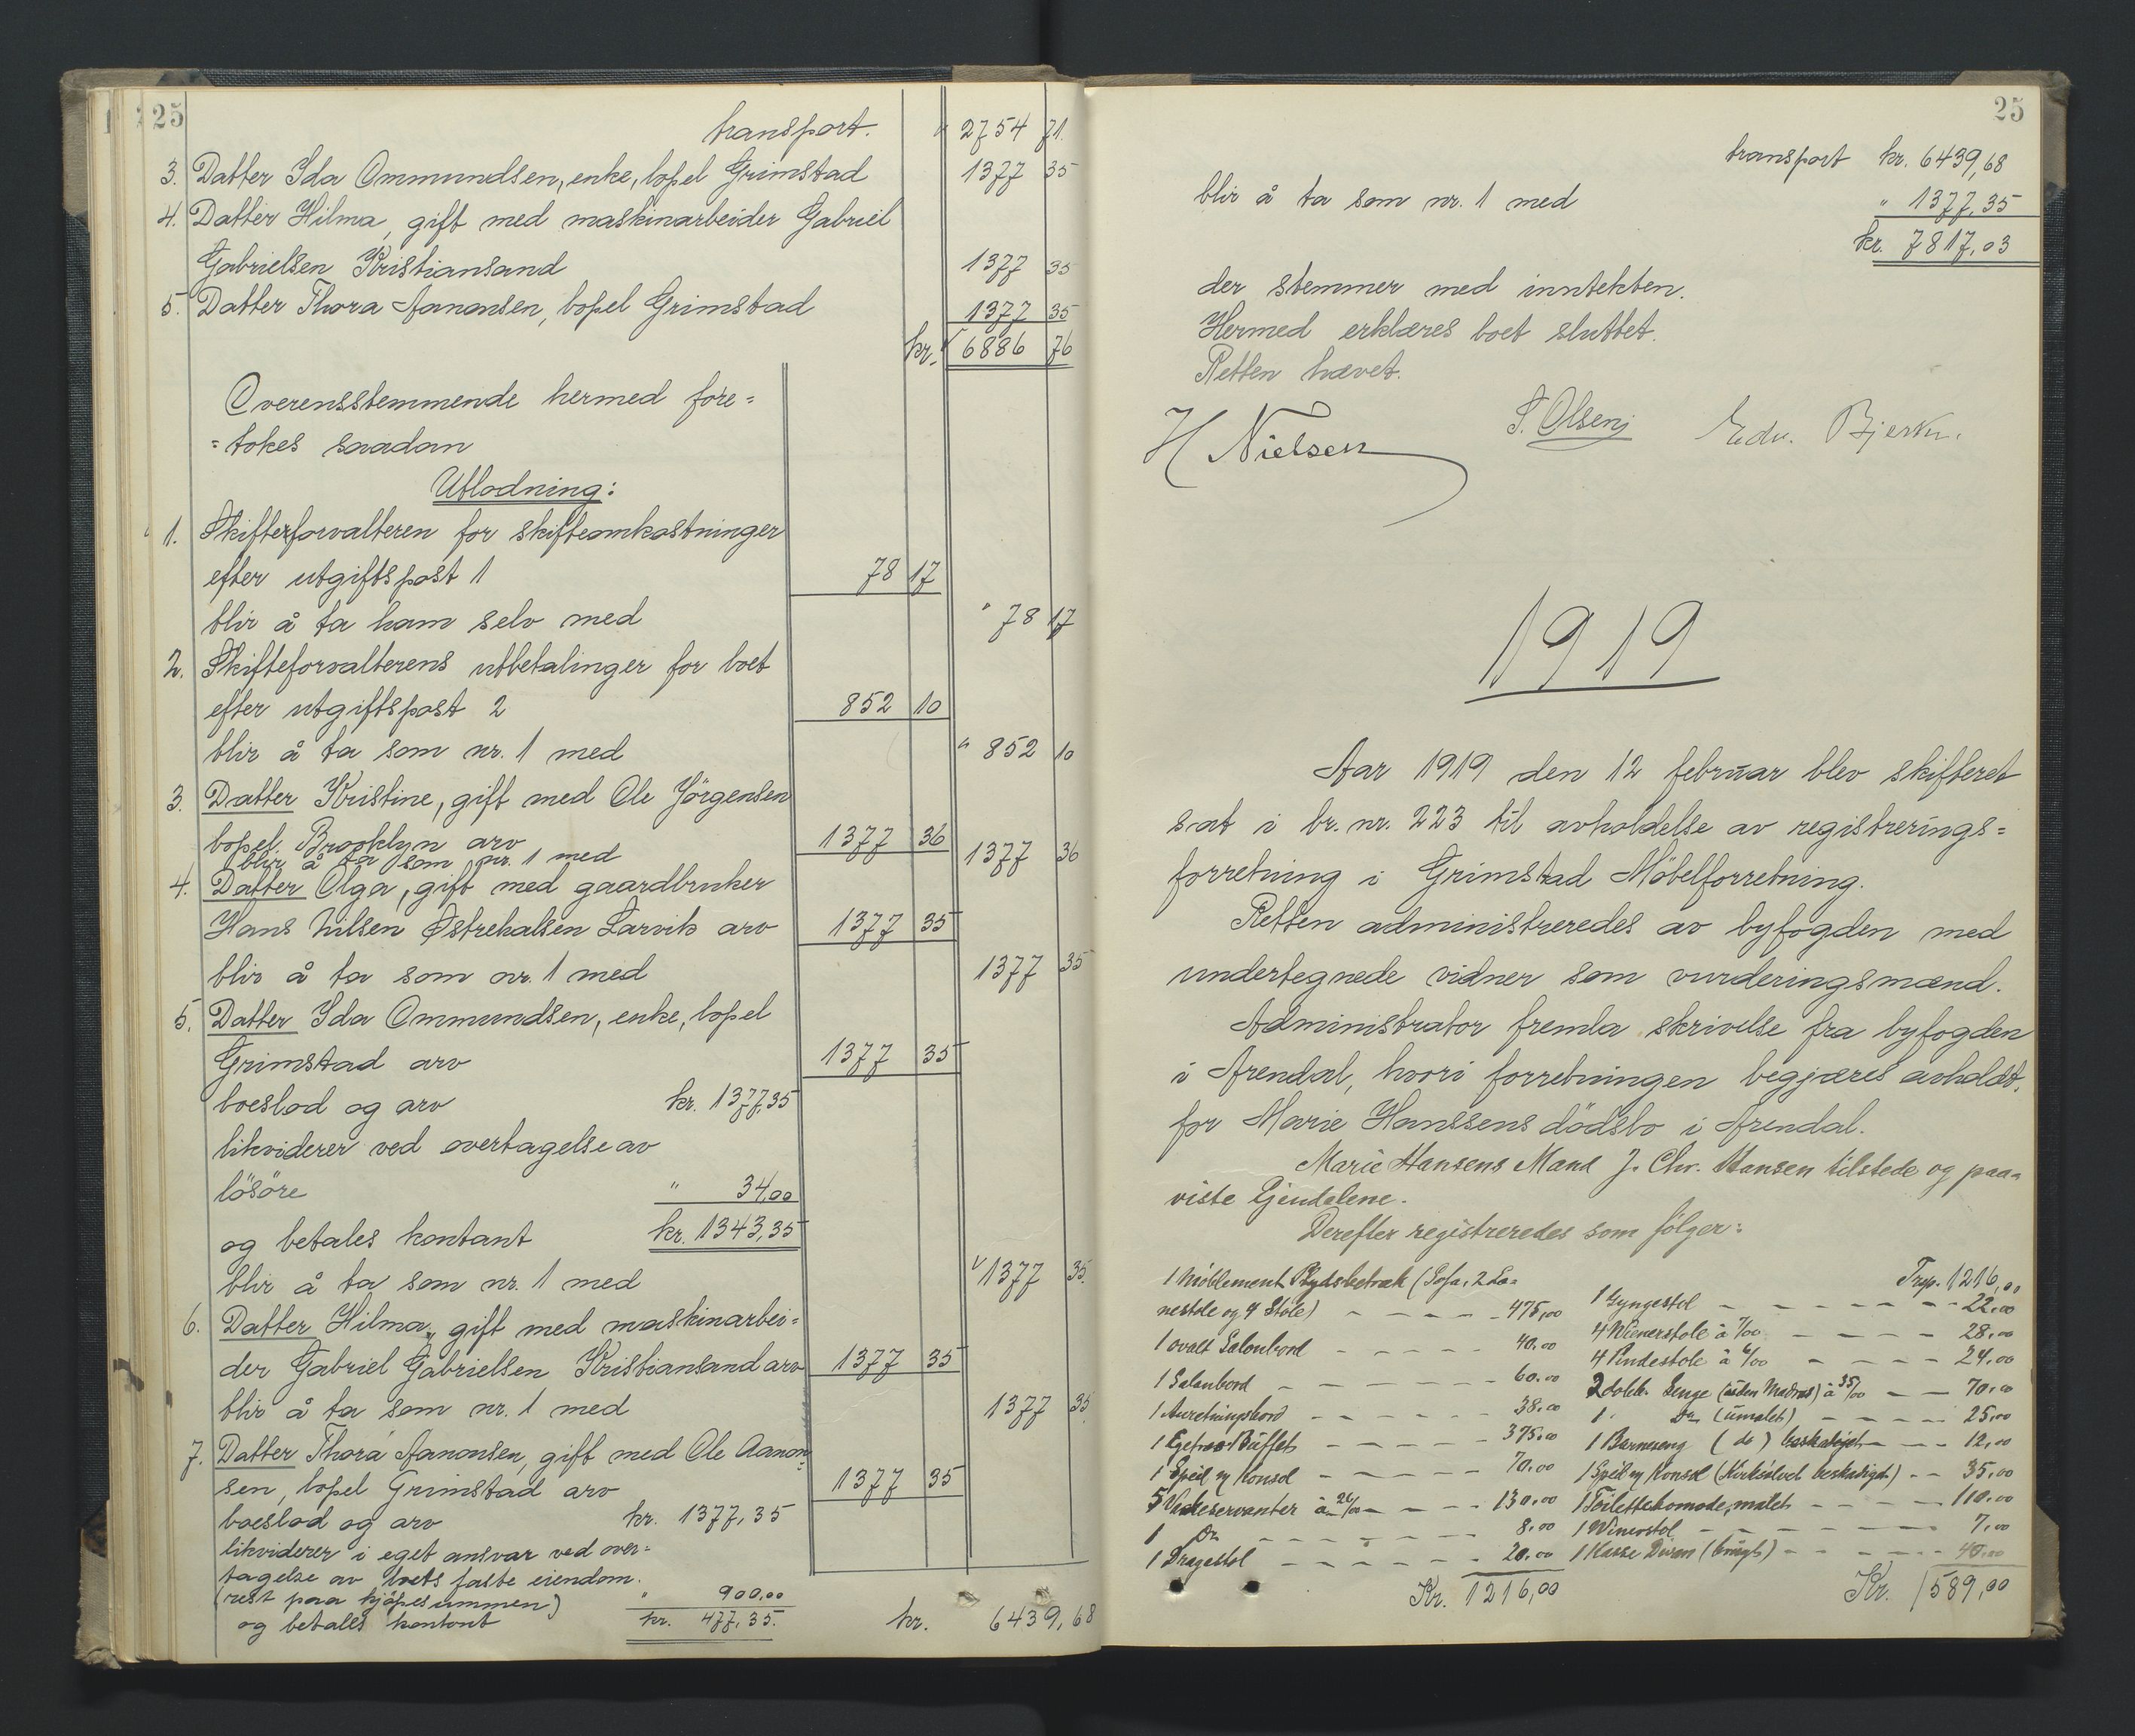 25
transport. " 2754 71.
3. Datter Ida Ommundsen, enke, bopel Grimstad 1377 35
4. Datter Hilma, gift med maskinarbeider Gabriel
Gabrielsen Kristiansand 1377 35
5. Datter Thora Aanonsen, bopel Grimstad 1377 35
kr. 6886 76
Overensstemmende hermed fore=
=tokes saadan
Utlodning:
1. Skifterforvalteren for skifteomkostninger
efter utgiftspost 1 78 17
blir å ta ham selv med " 78 17
2. Skifteforvalterens utbetalinger for boet
efter utgiftspost 2 852 10
blir å ta som nr. 1 med " 852 10
3. Datter Kristine, gift med Ole Jörgensen
bopel Brooklyn arv 1377 36
blir å ta som nr. 1 med 1377 36
4. Datter Olga, gift med gaardbruker
Hans Nilsen Østrehalsen Larvik arv 1377 35
blir å ta som nr. 1 med 1377 35
5. Datter Ida Ommundsen, enke, bopel
Grimstad arv 1377 35
boeslod og arv kr. 1377,35
likviderer ved overtagelse av
lösöre " 34,00
og betales kontant kr. 1343,35
blir å ta som nr. 1 med 1377 35.
6. Datter Hilma, gift med maskinarbei=
der Gabriel Gabrielsen Kristiansand arv 1377 35
blir å ta som nr. 1 med 1377 35
7. Datter Thora Aanonsen, gift med Ole Aanon=
sen, bopel Grimstad arv 1377 35
boeslod og arv kr. 1377,35
likviderer i eget ansvar ved over=
tagelse av boets faste eiendom.
(rest paa kjöpesummen) " 900,00
og betales kontant kr. 477,35.
kr. 6439,68
25
transport kr. 6439,68
blir å ta som nr. 1 med " 1377,35
kr. 7817,03
der stemmer med inntekten.
Hermed erklæres boet sluttet.
Retten hævet.
H Nielsen S. Olsen Edv. Bjerkn.
1919
Aar 1919 den 12 februar blev skifteret
sat i br. nr. 223 til avholdelse av registrerings=
forretning i Grimstad Möbelforretning.
Retten administreredes av byfogden med
undertegnede vidner som vurderingsmænd.
Administrator fremla skrivelse fra byfogden
i Arendal, hvori forretningen begjæres avholdt,
for Marie Hanssens dödsbo i Arendal.
Marie Hansens Mand J. Chr. Hansen tilstede og paa=
viste Ejendelene.
Derefter registreredes som følger:
1 Möblement Plydsbetræk (Sofa, 2 Læ=
nestole og 4 Stole) - - - - 475,00
1 ovalt Salonbord - - - - - 40.00
1 Salonbord - - - - - - 60.00
1 Anretningsbord - - - - - 38.00
1 Egetræs Büffet - - - - - 375.00
1 Speil m/ Konsol - - - - - 70.00
5 Vaskeservanter à 26/00 - - - - 130.00
1 Do - - - - - - 8.00
1 Dragestol - - - - - - 20.00
Kr. 1216,00
Trsp. 1216,00
1 Gyngestol - - - - - - 22.00
4 Wienerstole à 7/00 - - - - 28.00
4 Pindestole à 6/00 - - - - 24.00
2 dobb. Senge (uden Madras) à 35/00 - - 70.00
1 " Do (umalet) - - - - 25,00
1 Barneseng (do) beskadiget - - - 12,00
1 Speil m/ Konsol (Kirkesølvet beskadiget) - - 35,00
1 Toilettekomode, malet - - - - 110.00
1 Wienerstol - - - - - - 7.00
1 Kasse Divan (brugt) - - - - 40.00
Kr. 1589,00